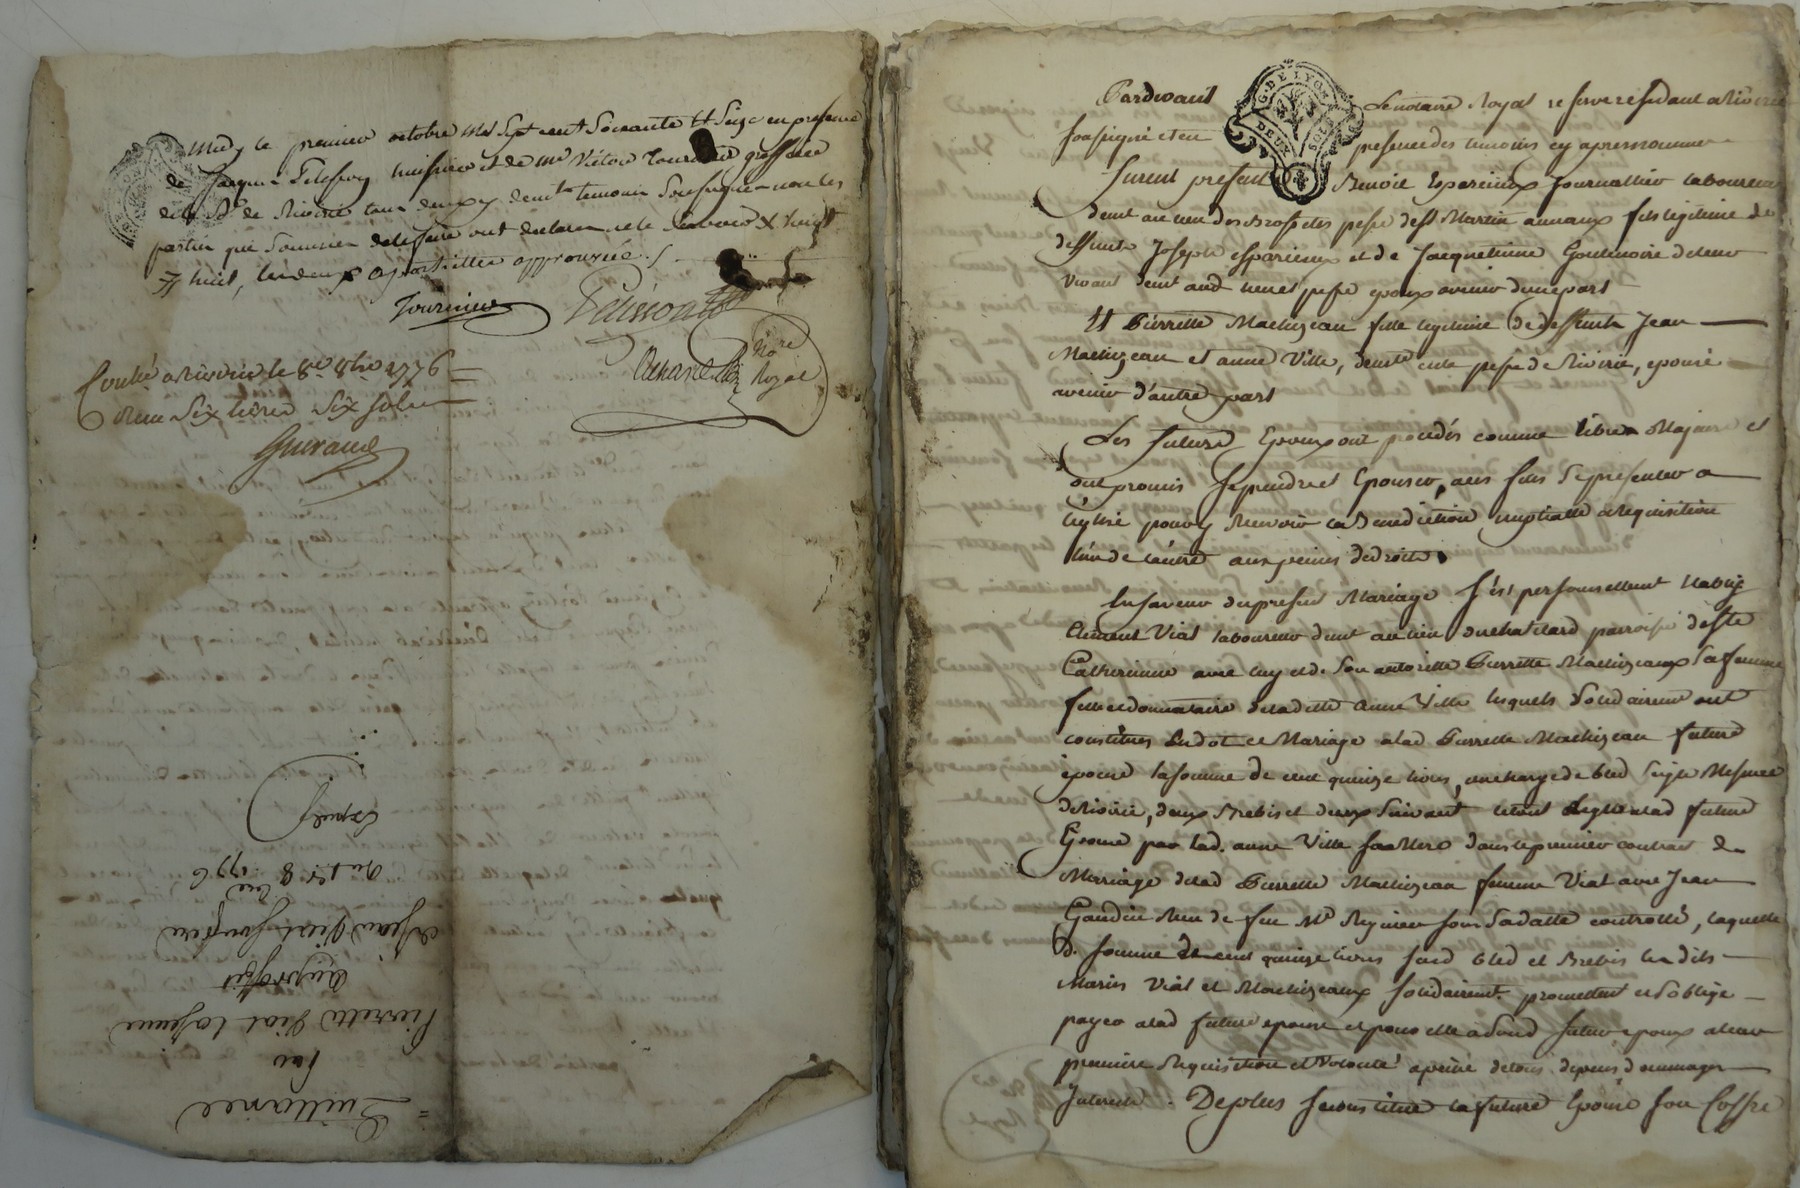 midy le premier octobre mil Sept cent Soixante et Seize en presence
de Jacques
de Riverie tous deux y demt temoins Soussignes non les
parties qui Sommées de le faire ont declaré ne le Scavoir
huit, les deux apostilles approuvée ./.
Fournier
Nore Royal
Conllé a Riverie le 8e 8bre 1776
Reçu Six livres Six Sols
Guiraud
Quittance
Par
Pierrette Viat la femme
Au proffit
de Jean Viat
Du 1er 8bre 1776
Pardevant
G. DE LYON
DEUX SOLS
Le notaire Royal reservé residant a Riverie
soussigné et en
presence des temoins cy apres nommés
Furent presents
Benoit Esparcieux Journallier laboureur
demt au lieu des Brossettes psse de St Martin annaux fils legitime de
deffunts Joseph Esparcieux et de Jacquetinne Goutenoire de leur
Vivant demt aud lieu et psse epoux avenir d'une part
Et Pierrette Machizeau fille legitime de deffunts Jean
Machizeau et anne Ville, demte en cette psse de Riverie, epouse
avenir d'autre part
Les futurs Epoux ont procédés comme libres Majeurs et
ont promis se prendre et Epouser, aux fins se presenter a
l'eglise pour y recevoir la Benediction nuptialle a Requisition
l'un de l'autre aux peines de droits.
En faveur du present Mariage s'est personnellement Etably
Clement Viat laboureur demt au lieu du chatelard parroisse de Ste
Catherinne avec luy et d. Son autorité Pierrette Machizeaux Sa femme
fille et donnataire de la ditte anne Ville lesquels Solidairemt ont
constitués En dot et Mariage a lad Pierrette Machizeau future
epouse la somme de cent quinze livres, une charge de bled Seigle Mesure
de Riverie, deux Brebis et deux Suivant letout Legué a lad future
Epouse par lad. anne Ville Sa Mere dans le premier contrat de
Mariage de lad Pierrette Machizeau femme Viat avec Jean
Gaudin Reçu de feu Me Reynier sous Sa datte controllé, laquelle
d. somme de cent quinze livres susd bled et Brebis les dits
Mariés Viat et Machizeaux solidairemt. promettent et s'oblige
payer a lad future epouse et pour elle a Sond futur epoux a leur
premiere Requisition et Volonté a peine de tous depens dommages
Interets. De plus se constitue la future Epouse son Coffre